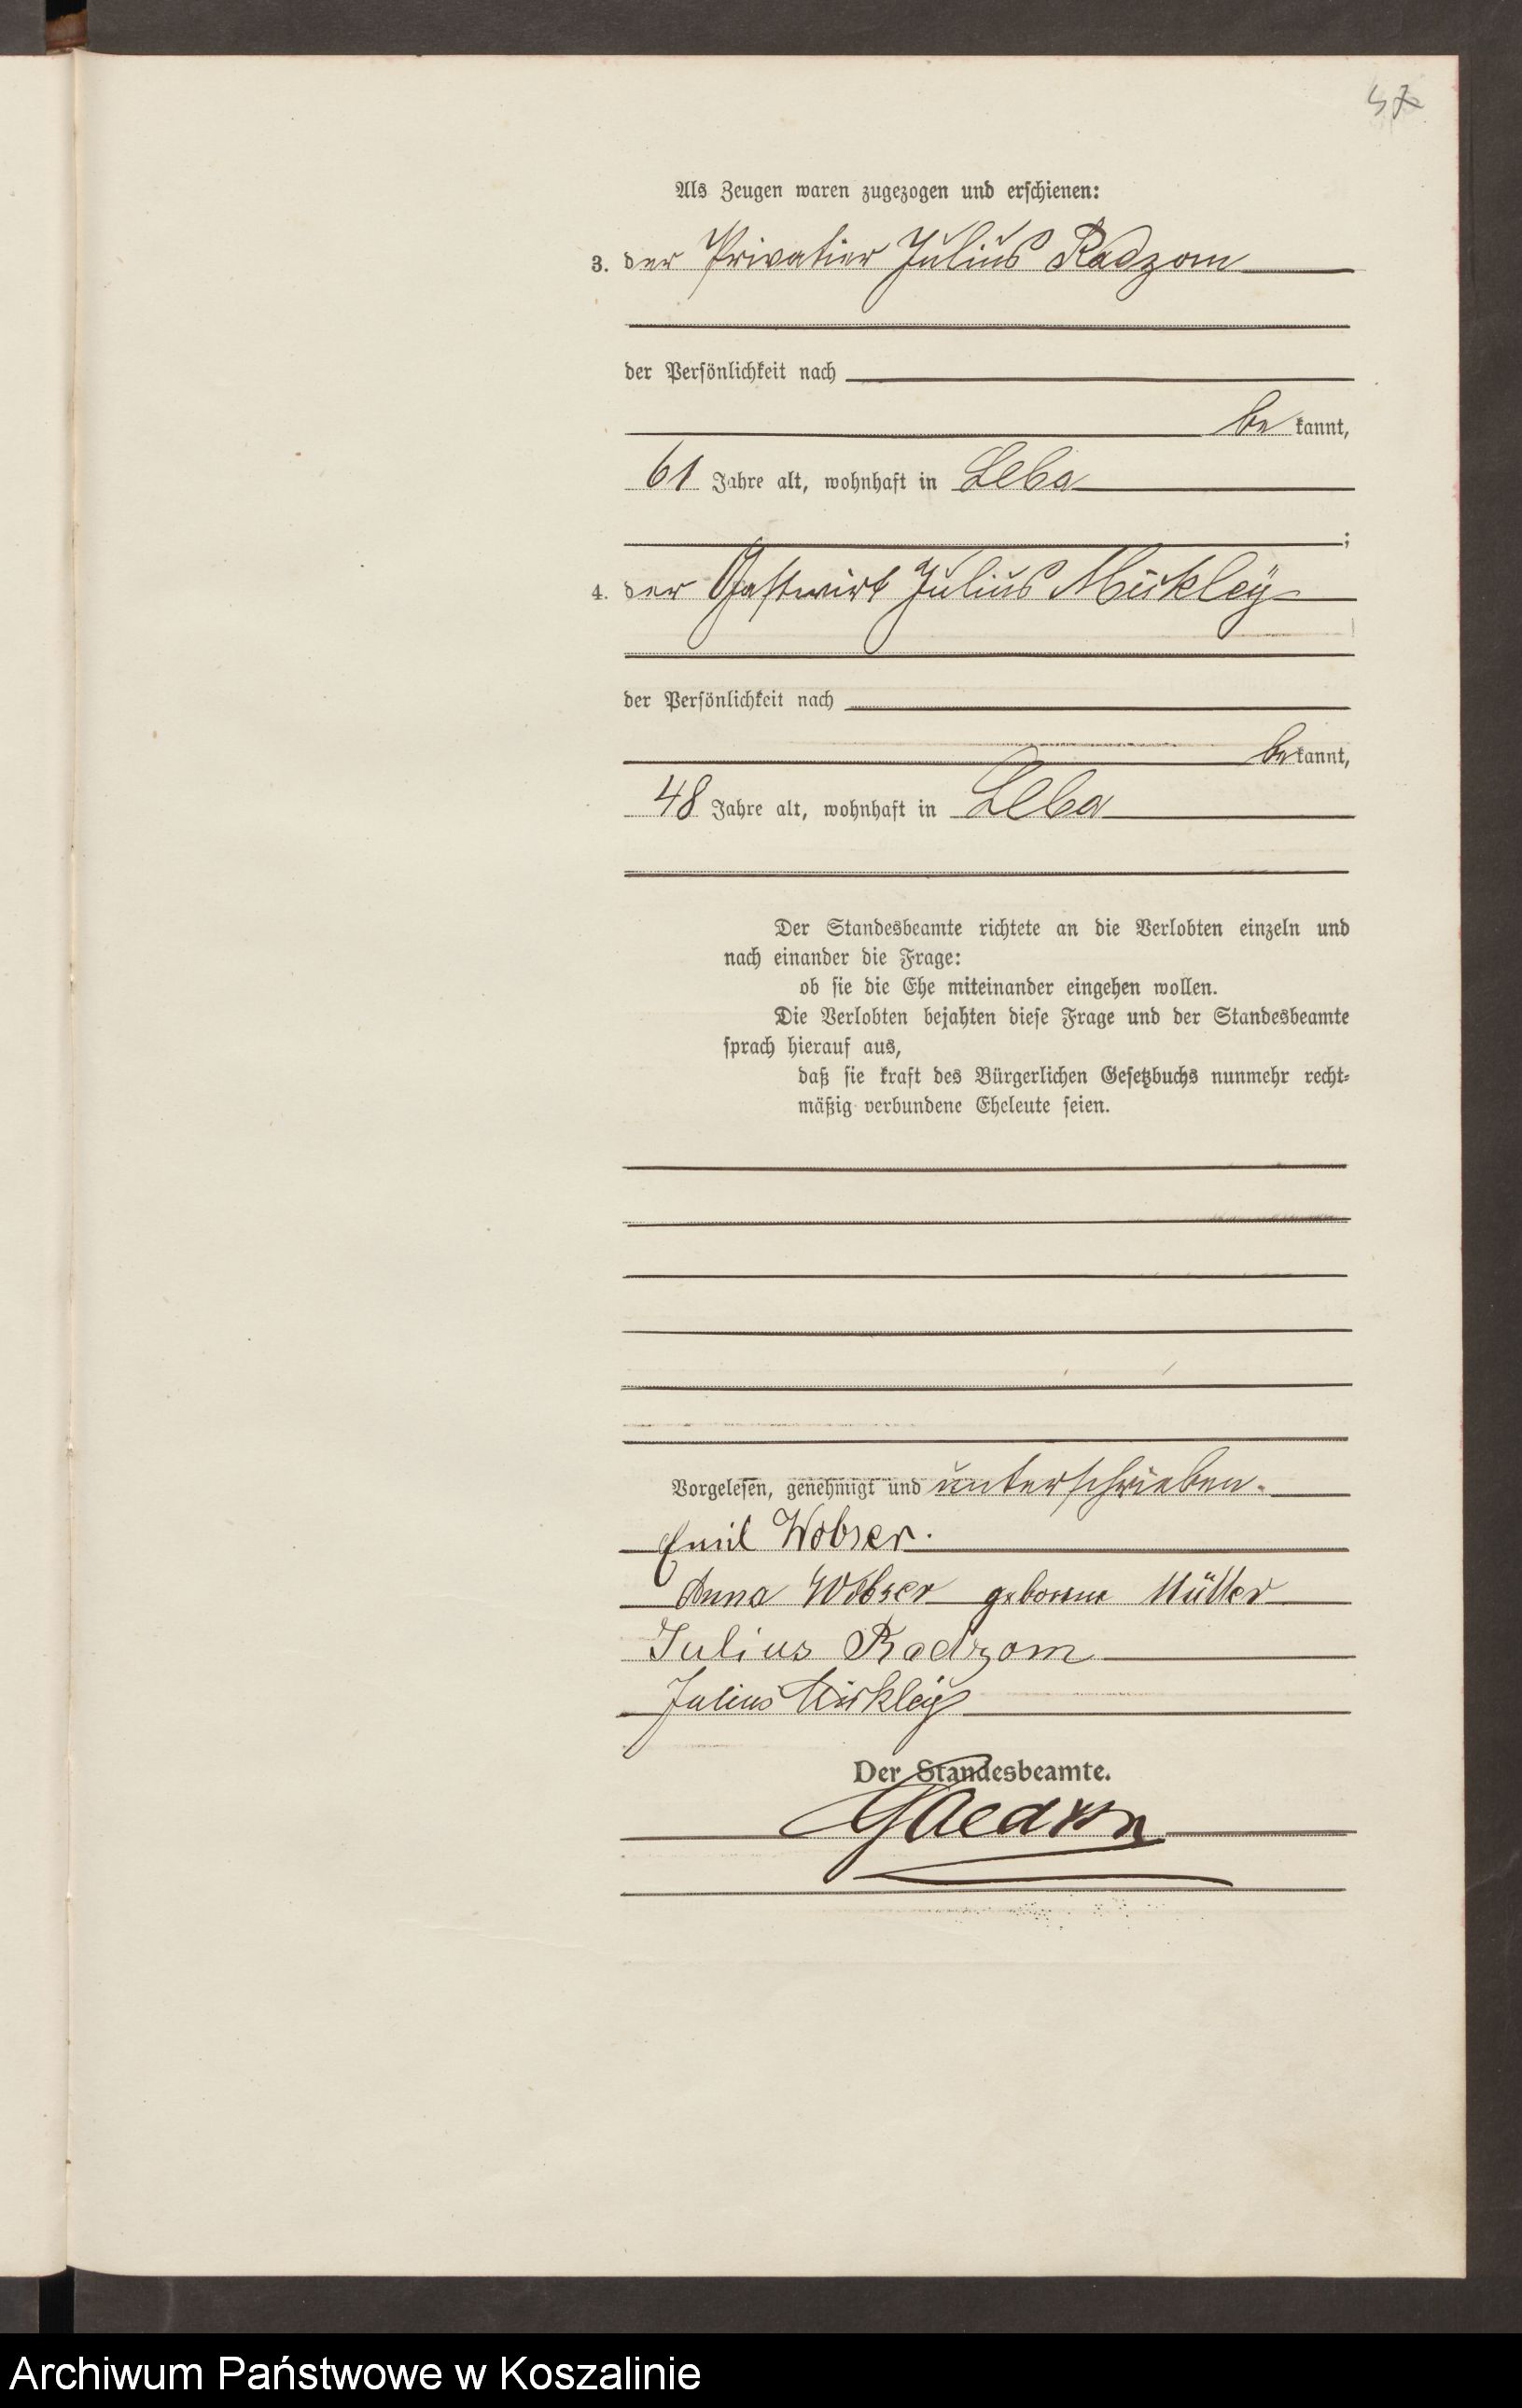 57
Als Zeugen waren zugezogen und erschienen:
3. der Privatier Julius Radzom
der Persönlichkeit nach
be kannt,
61 Jahre alt, wohnhaft in Leba
;
4. der Gastwirt Julius Mückley
der Persönlichkeit nach
be kannt,
48 Jahre alt, wohnhaft in Leba
Der Standesbeamte richtete an die Verlobten einzeln und
nach einander die Frage:
ob sie die Ehe miteinander eingehen wollen.
Die Verlobten bejahten diese Frage und der Standesbeamte
sprach hierauf aus,
daß sie kraft des Bürgerlichen Gesetzbuchs nunmehr recht-
mäßig verbundene Eheleute seien.
Vorgelesen, genehmigt und unterschrieben.
Emil Wobser.
Anna Wobser geborene Müller
Julius Radzom
Julius Mückley
Der Standesbeamte.
Archiwum Państwowe w Koszalinie